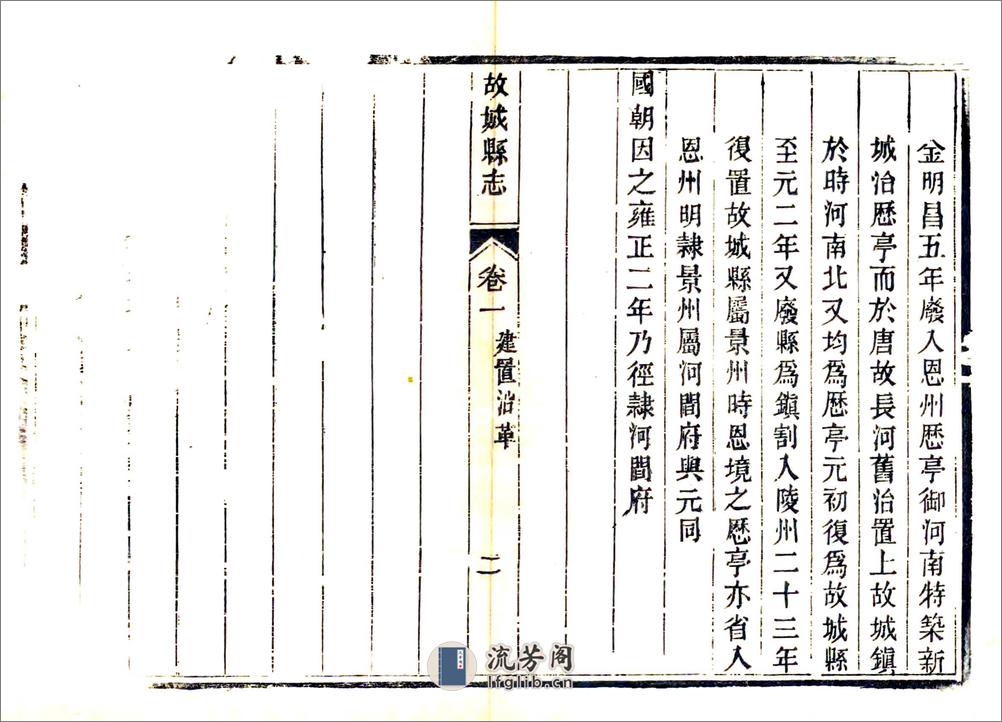 金明昌五年廢入恩州歷亭御河南特築新
城治歷亭而於唐故長河舊治置上故城鎮
於時河南北又均為歷亭元初復為故城縣
至元二年又廢縣為鎮割入陵州二十三年
復置故城縣屬景州時恩境之歷亭亦省入
恩州明隸景州屬河間府與元同
國朝因之雍正二年乃徑隸河間府
故城縣志
卷一
建置沿革
二
流芳阁
lfglib.cn